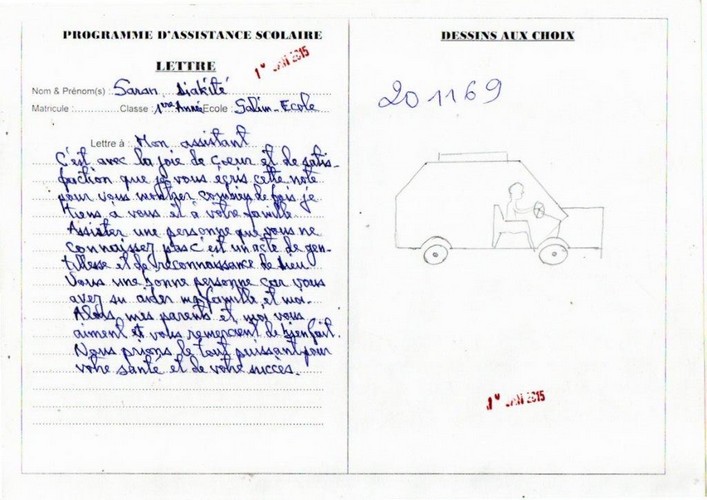 PROGRAMME D'ASSISTANCE SCOLAIRE
LETTRE
1 JAN 2015
Nom & Prénom(s) : Saran Diakité
Matricule : Classe : 1ère Année Ecole : Salim-Ecole
Lettre à : Mon assistant
C'est avec la joie de Coeur et de satis-
faction que je vous écris cette note
pour vous montrer combien de fois je
tiens à vous et à votre famille
Assister une personne que vous ne
connaissez pas c'est un acte de gen-
tillesse et de reconnaissance de Dieu
Vous une bonne personne car vous
avez su aider ma famille et moi.
Alors, mes parents et moi vous
aiment et vous remercient de bienfait.
Nous prions le tout puissant pour
votre santé et de votre succes.
DESSINS AUX CHOIX
201169
JAN 2015